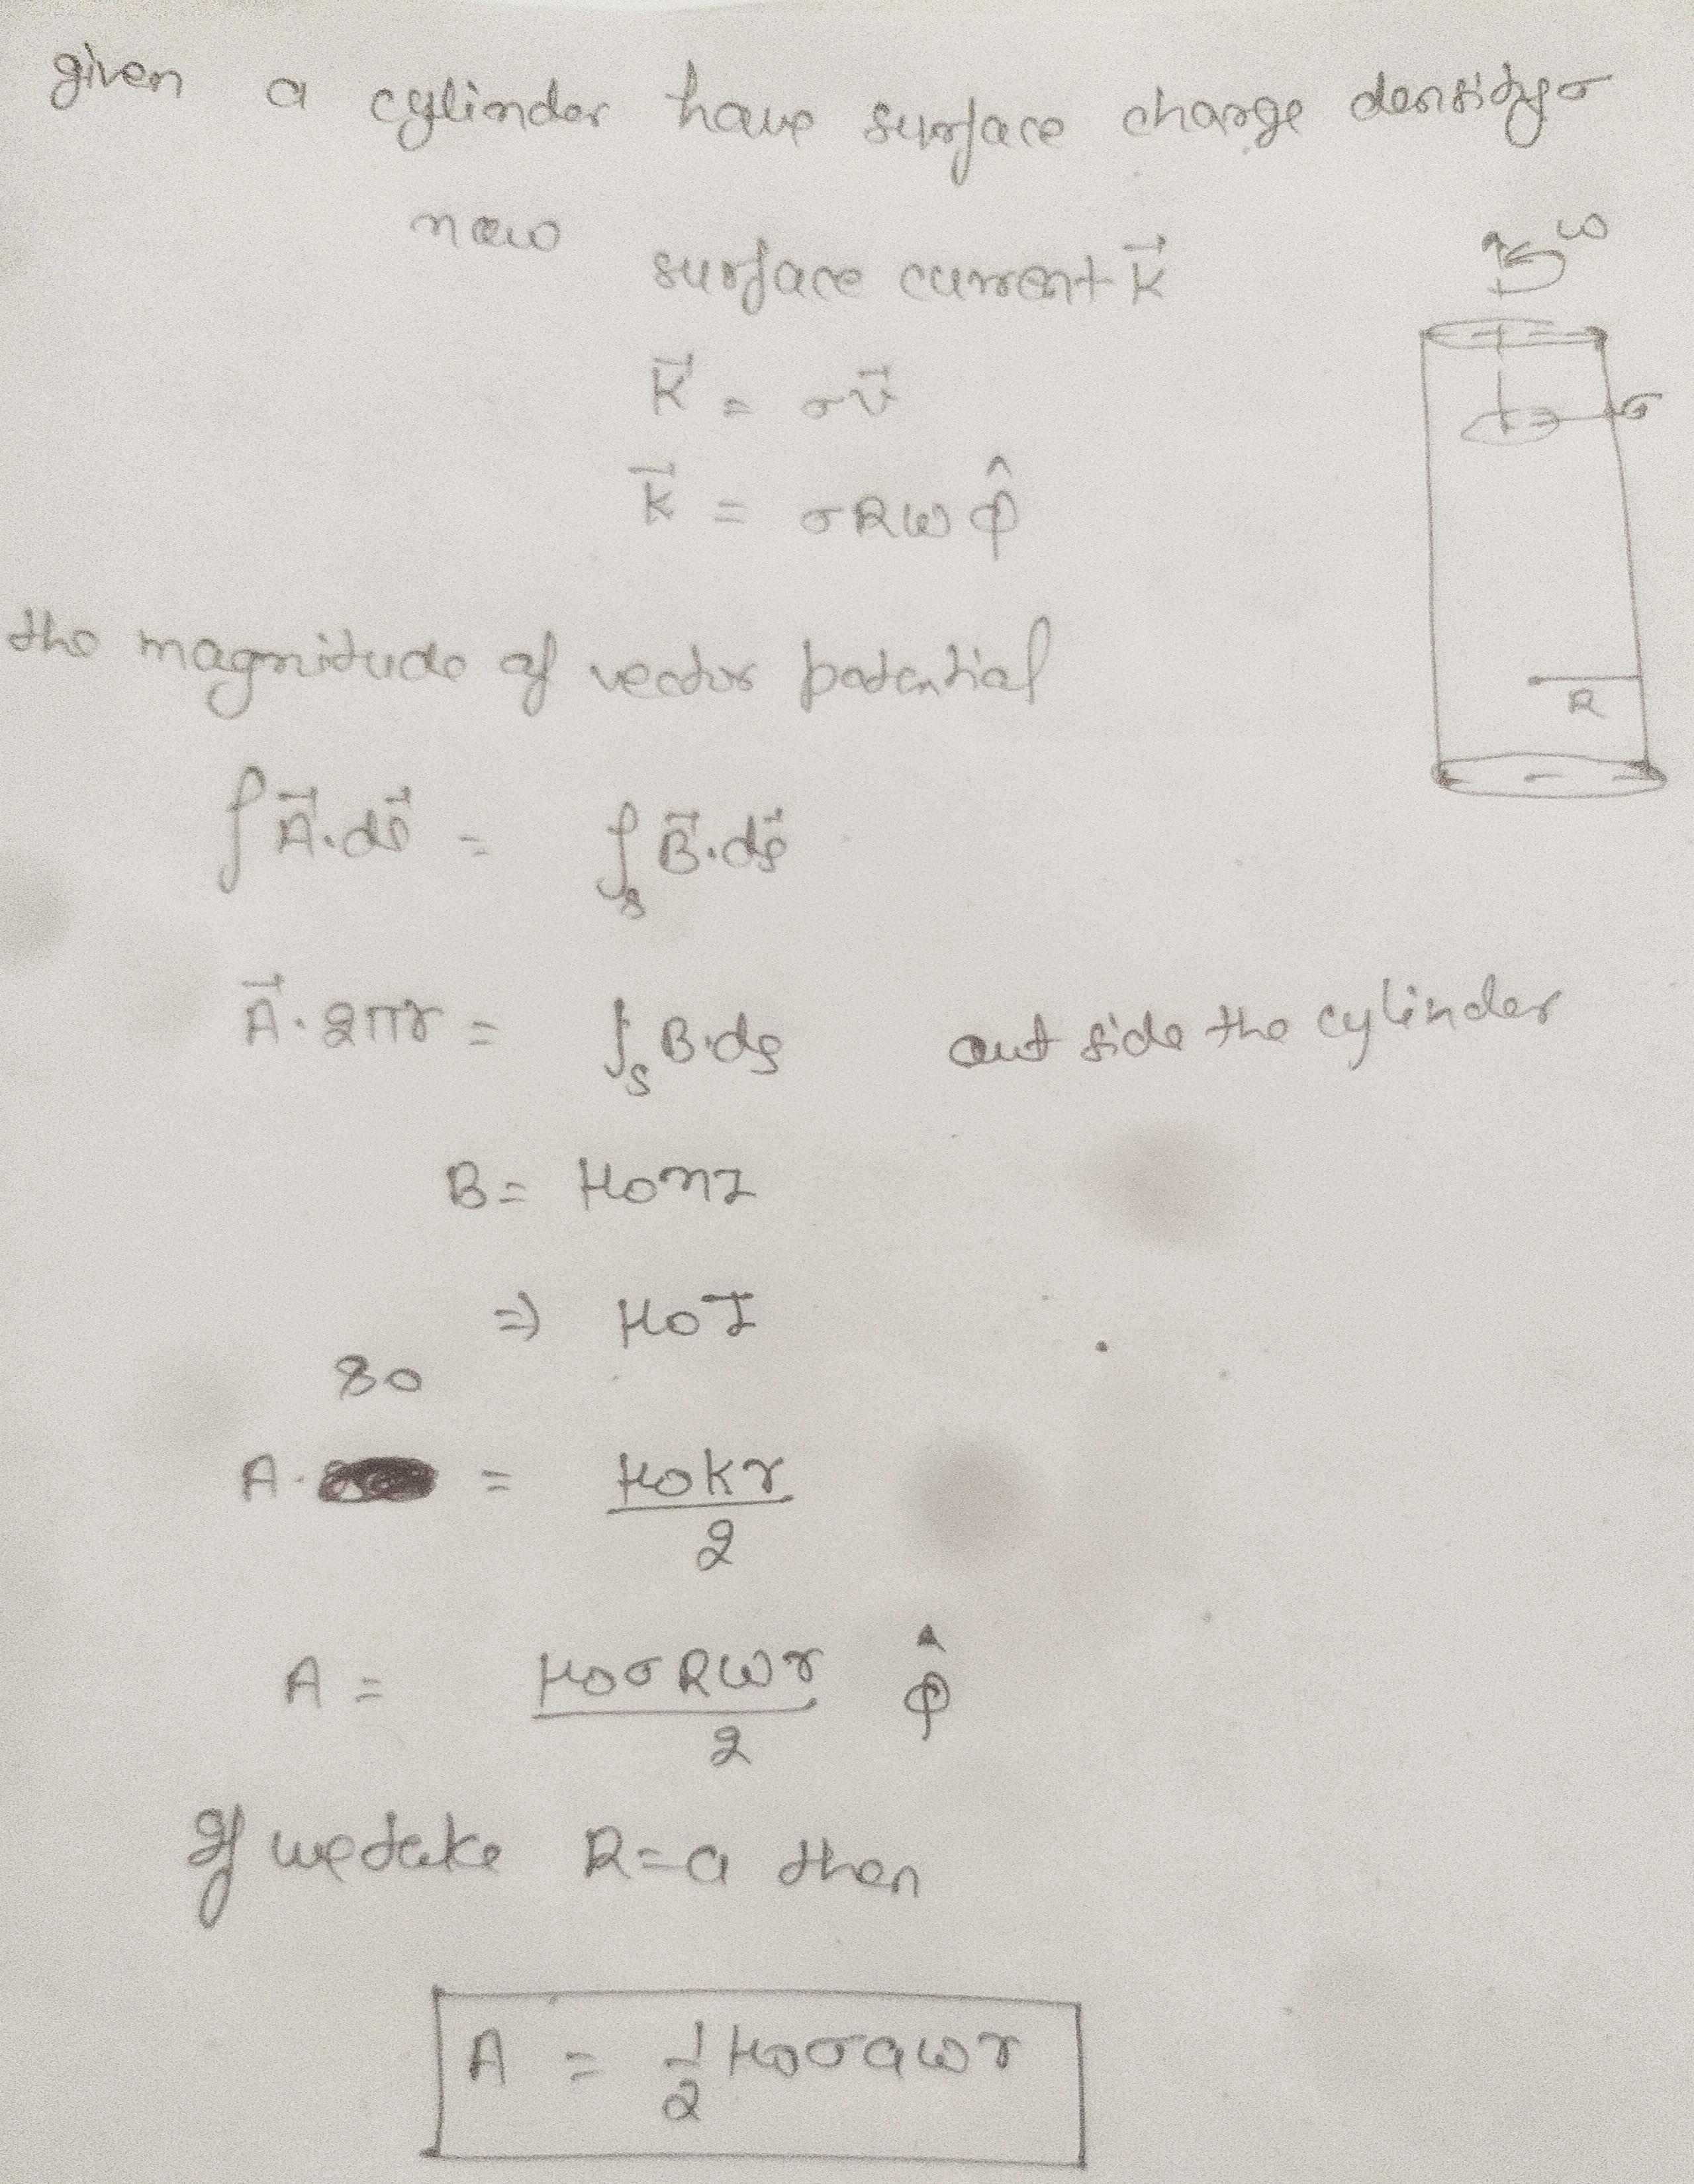 given a cylinder have surface charge density σ
now surface current K⃗
ω
K⃗ = σv⃗
σ
K⃗ = σRω φ̂
the magnitude of vector potential
R
∫A⃗.dl⃗ = ∫ₛ B⃗.ds⃗
A⃗.2πr = ∫ₛ B.ds out side the cylinder
B = μ₀nI
⇒ μ₀I
so
A. = μ₀kr/2
A = μ₀σRωr/2 φ̂
If we take R=a then
A = 1/2 μ₀σaωr